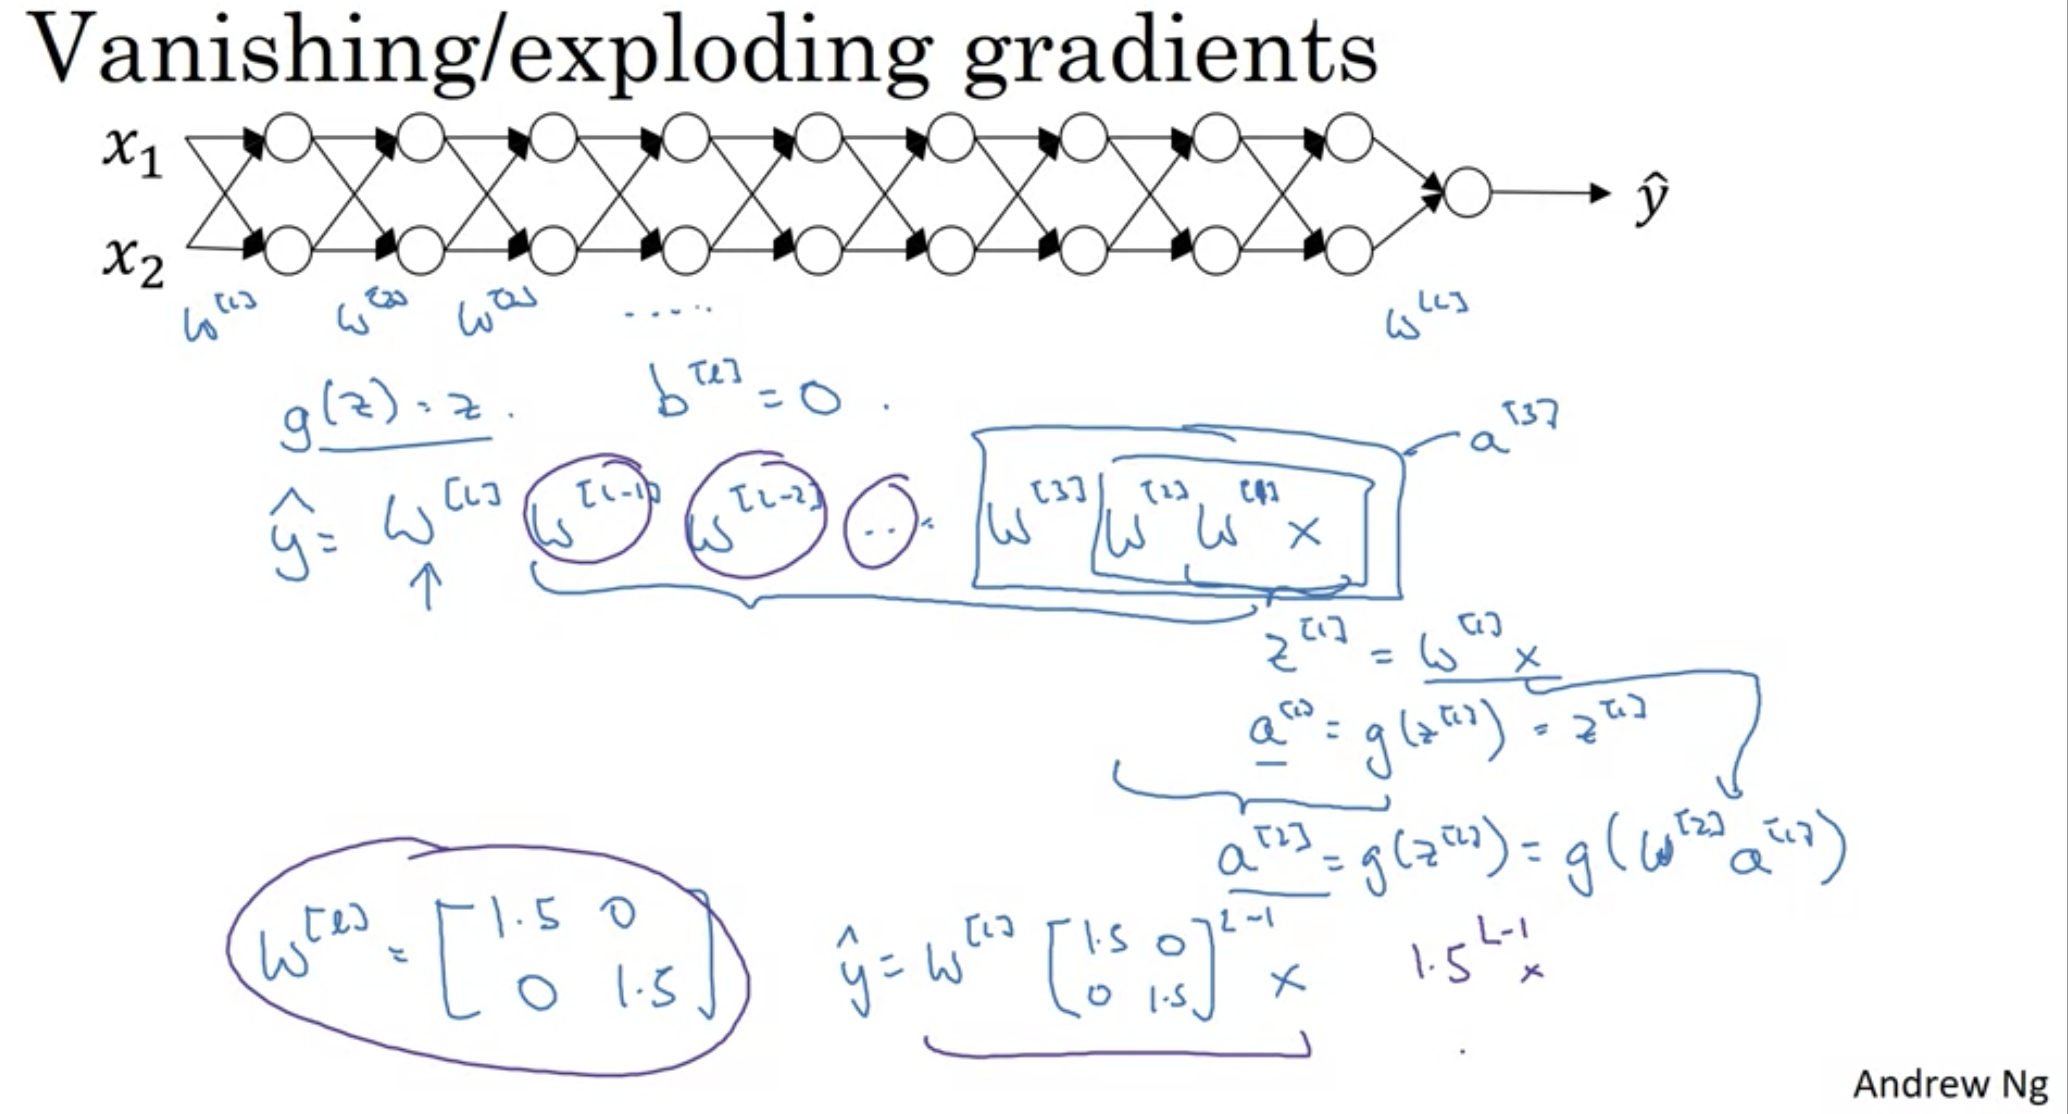 Vanishing/exploding gradients
x₁
x₂
ŷ
W^[1] W^[2] W^[3] ..... W^[L]
g(z) = z . b^[l] = 0 .
a^[3]
ŷ = W^[L] W^[L-1] W^[L-2] ... W^[3] W^[2] W^[1] x
z^[1] = W^[1] x
a^[1] = g(z^[1]) = z^[1]
a^[2] = g(z^[2]) = g(W^[2] a^[1])
W^[l] = [1.5 0
0 1.5]
ŷ = W^[L] [1.5 0
0 1.5]^L-1 x
1.5^L-1 x
Andrew Ng